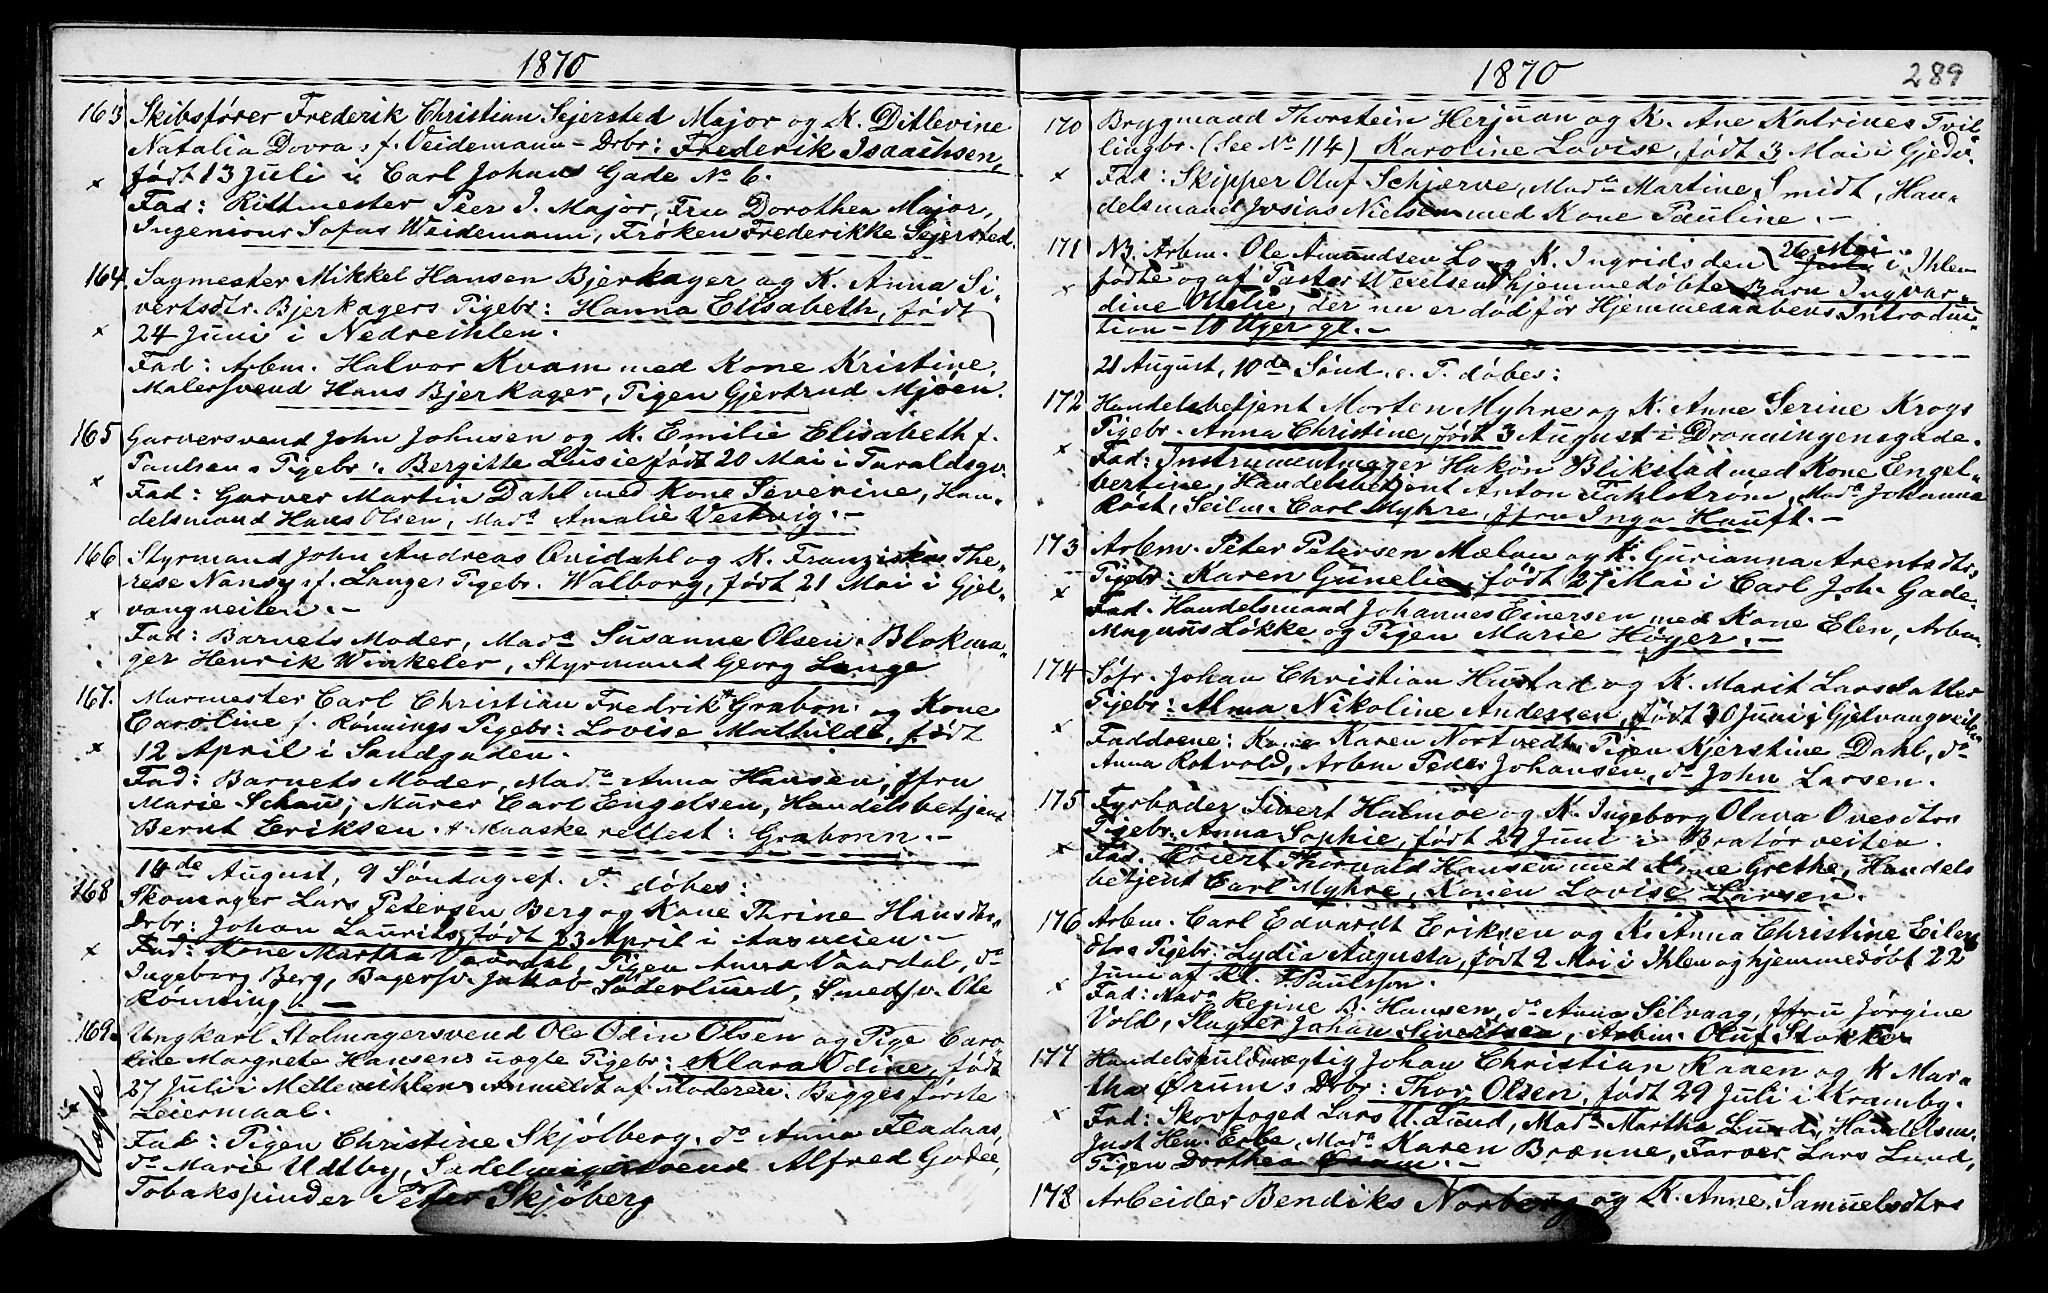 1870
163 Skibsfører Frederik Christian Sejersted Major og K. Ditlevine
Natalia Dovra, f. Veidemann - Drbr: Frederik Isaachsen,
født 13 Juli i Carl Johans Gade No 6.
x
Fad: Rittmester Peer I. Major, Fru Dorothea Major,
Ingeniour Sofus Weidemann, Frøken Frederikke Sejersted.
164 Sagmester Mikkel Hansen Bjerkager og K. Anna Si-
vertsdtr. Bjerkagers Pigebr: Hanna Elisabeth, født
x 24 Juni i Nedreihlen.
Fad: Arbm. Halvor Kvam med Kone Kristine,
Malersvend Hans Bjerkager, Pigen Gjertrud Mjøen.
165 Garversvend John Johnsen og K. Emilie Elisabeth f.
Paulsens Pigebr: Bergitte Lusie født 20 Mai i Taraldsgv.
x Fad: Garver Martin Dahl med Kone Severine, Han-
delsmand Hans Olsen, Mada Amalie Vestvig.-
166 Styrmand John Andreas Qvidahl og K. Franziska The-
rese Nansy f. Langes Pigebr. Walborg, født 21 Mai i Gjel-
x vangveiten.-
Fad: Barnets Moder, Mada Susanne Olsen, Blokma-
ger Henrik Winkeler, Styrmand Georg Lange
167. Murmester Carl Christian Fredrik Grabon* og Kone
Caroline f. Rønnings Pigebr: Lovise Mathilde, født
x 12 April i Sandgaden.
Fad: Barnets Moder, Mada Anna Hansen, Jfru
Marie Schau, Murer Carl Engelsen, Handelsbetjent
Bernt Eriksen. * Maaske rettest: Grabonn.-
14de August, 9 Søndag ef. T. døbes:
168 Skomager Lars Petersen Berg og Kone Thrine Hansdtrs
Drbr: Johan Laurits, født 23 April i Aasveien.-
x Fad: Kone Martha Vaardal, Pigen Anna Vaardal, do
Ingeborg Berg, Bagersv. Jakob Söderlund, Smedsv. Ole
Rønning.-
169. Ungkarl Stolmagersvend Ole Odin Olsen og Pige Caro-
line Margrete Hansens uægte Pigebr: Klara Odine, født
27 Juli i Mellemihlen. Anmeldt af Moderen. Begges første
Leiermaal.
x Uægte
Fad: Pigen Christine Skjølberg, do Anna Fladaas,
do Marie Udtby, Sadelmagersvend Alfred Godee,
Tobakspinder Peter Skjøberg
1870
289
170 Brygmand Thorstein Herjuan og K. Ane Katrines Tvil-
lingbr. (See No 114) Karoline Lovise, født 3 Mai i Gjedv.
x Fad: Skipper Oluf Schjærve, Mada Martine Smidt, Han-
delsmand Josias Nielsen med Kone Pauline.-
171 NB. Arbm. Ole Amundsen Lo og K. Ingrids den 26 Mai Juli i Ihlen
x fødte og af Pastor Wexelsen hjemmedøbte Barn Ingvar-
dine Otelie, der nu er død før Hjemmedaabens Introduk-
tion - 10 Uger gl.-
21 August, 10de Sønd. e. T. døbes:
172 Handelsbetjent Morten Myhre og K. Anne Serine Krogs
Pigebr. Anna Christine, født 3 August i Dronningensgade.
x Fad: Instrumentmager Hakon Blikstad med Kone Engel-
bertine, Handelsbetjent Anton Fahlstrøm, Mada Johanna
Røst, Seilm. Carl Myhre, Jfru Inga Hauft.-
173 Arbm. Peter Petersen Mælan og K. Gurianna Arentsdtrs
Pigebr: Karen Gunelie, født 27 Mai i Carl Joh. Gade.
x Fad. Handelsmand Johannes Einersen med Kone Elen, Arbm.
Magnus Løkke og Pigen Marie Høyer.-
174 Søfr. Johan Christian Hustad og K. Marit Larsdatter
Pigebr: Alma Nikoline Andersen, født 30 Juni i Gjelvangveiten
x Faddrene: Kone Karen Nortvedt, Pigen Kjerstine Dahl, do
Anna Rotvold, Arbm Peder Johansen, do John Larsen.
175 Fyrbøder Sivert Halmøe og K. Ingeborg Olava Ovesdtrs
Pigebr. Anna Sophie, født 29 Juni i Bratørveiten.
x Fad. Thorvald Hansen med Kone Grethe, Handels
betjent Carl Myhre, Konen Lovise Larsen.
176 Arbm. Carl Edvardt Eriksen og K. Anna Christine Eilers
dtrs Pigebr: Lydia Augusta, født 2 Mai i Ihlen og hjemmedøbt 22
Juni af Kl. Paulsson.
x Fad: Mada Regine B. Hansen, do Anna Selvaag, Jfru Jørgine
Vold, Slagter Johan Sivertsen, Arbm. Oluf Stokker
177 Handelsfuldmægtig Johan Christian Raaen og K Mar-
tha Ørums Drbr: Thor Olsen, født 29 Juli i Kramby.
x Fad: Skovfoged Lars U. Lund, Mada Martha Lund, Handelsm.
Just Hen. Erbe, Mada Karen Brænne, Farver Lars Lund,
Pigen Dorthea Ørum.-
178 Arbeider Bendiks Norberg og K. Anne Samuelsdtrs